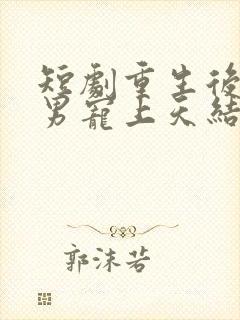 短劇重生後
男寵上天結
郭沫若